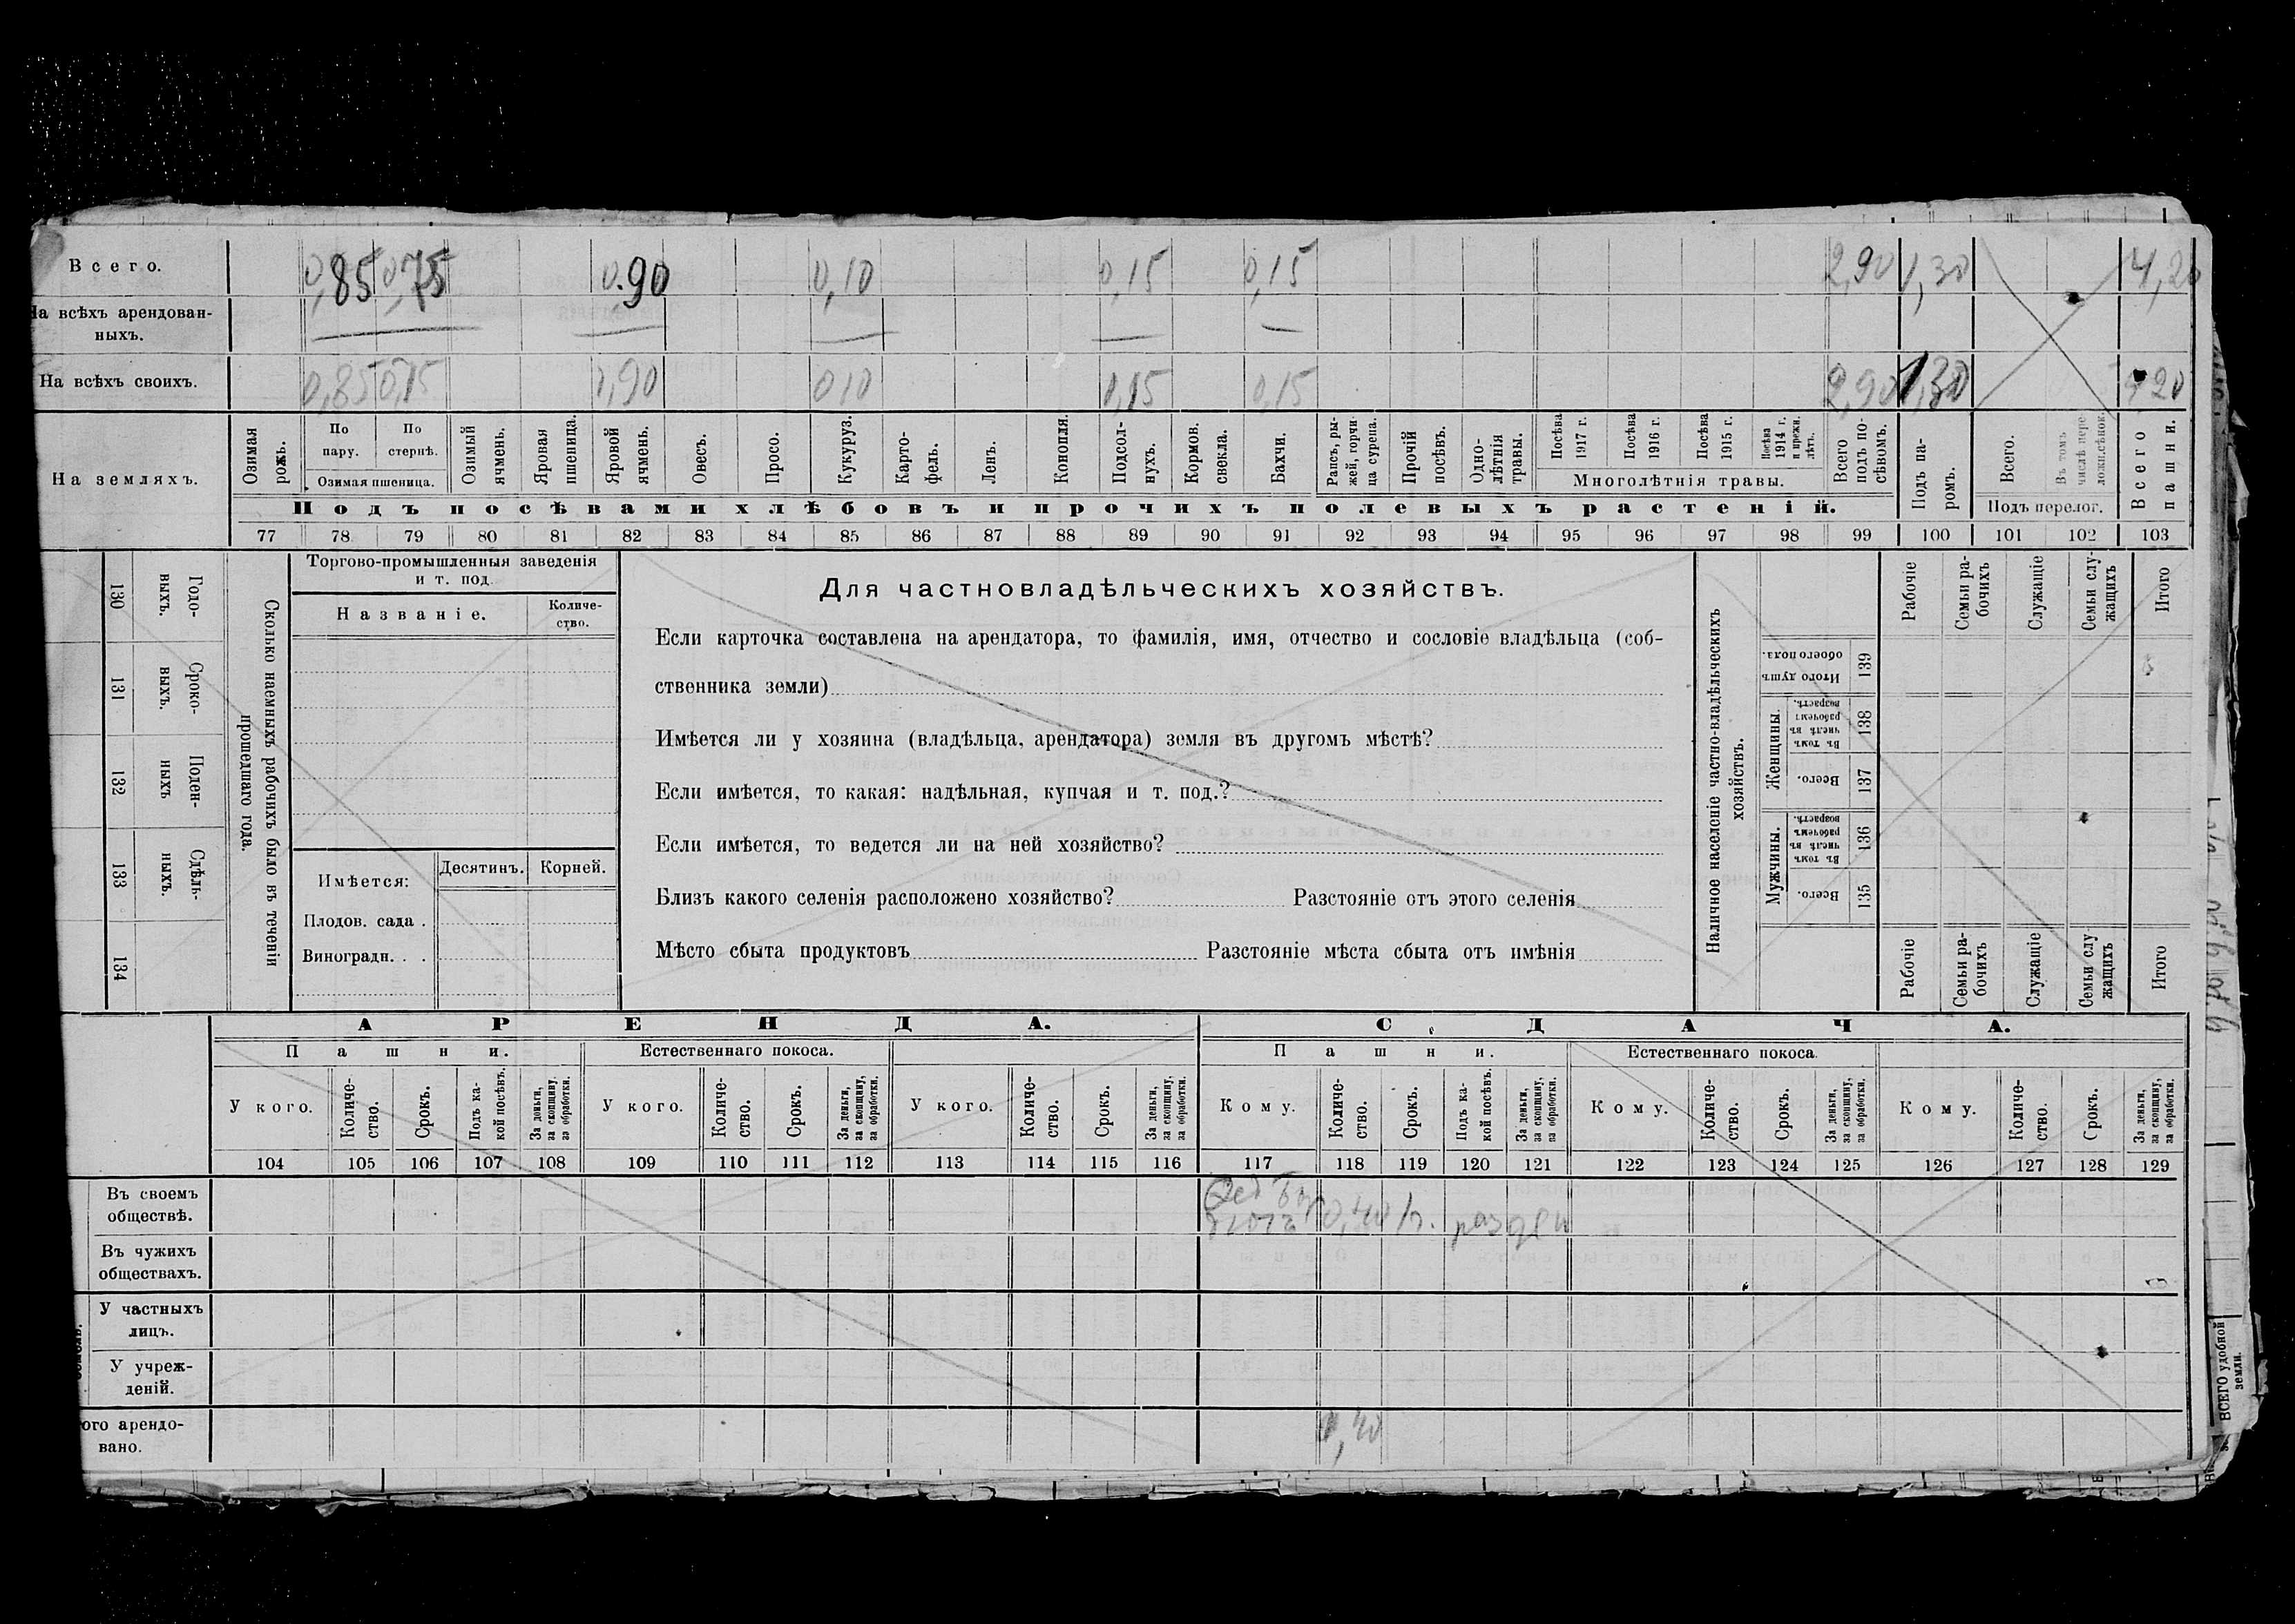 Всего. 0,85 0,75 0.90 0,10 0,15 0,15 2,90 1,30 4,20
На всѣхъ арендован-
ныхъ.
На всѣхъ своихъ. 0,85 010 0,15 0,15 2,90 1,30 4,20
На земляхъ.
Озимая рожь.
По пару.
По стернѣ.
Озимая пшеница.
Озимый ячмень.
Яровая пшеница.
Яровой ячмень.
Овесъ.
Просо.
Кукуруз.
Карто-
фель.
Ленъ.
Конопля.
Подсол-
нухъ.
Кормов. свекла.
Бахчи.
Рапсъ, ры-
жей, горчи-
ца сурепа.
Прочій посѣвъ.
Одно-
лѣтнія травы.
Посѣва 1917 г.
Посѣва 1916 г.
Посѣва 1915 г.
Посѣва 1914 г. и прежн. лѣтъ.
Многолѣтнія травы.
Всего подъ по-
сѣвомъ.
Подъ па-
ромъ.
Всего.
Въ томъ числѣ пере
Подъ перелог.
Всего пашни.
Подъ посѣвами хлѣбовъ и прочихъ полевыхъ растеній.
77 78 79 80 81 82 83 84 85 86 87 88 89 90 91 92 93 94 95 96 97 98 99 100 101 102 103
130 Годо-
выхъ.
131 Сроко-
выхъ.
132 Поден-
ныхъ
133 Сдѣль-
ныхъ.
134
Сколько наемныхъ рабочихъ было въ теченіи
прошедшаго года.
Торгово-промышленныя заведенія
и т. под.
Названіе.
Количе-
ство.
Имѣется:
Десятинъ. Корней.
Плодов. сада .
Виноградн. . .
Для частновладѣльческихъ хозяйствъ.
Если карточка составлена на арендатора, то фамилія, имя, отчество и сословіе владѣльца (соб-
ственника земли)
Имѣется ли у хозяина (владѣльца, арендатора) земля въ другомъ мѣстѣ?
Если имѣется, то какая: надѣльная, купчая и т. под.?
Если имѣется, то ведется ли на ней хозяйство?
Близъ какого селенія расположено хозяйство? Разстояніе отъ этого селенія
Мѣсто сбыта продуктовъ Разстояніе мѣста сбыта отъ имѣнія
Наличное населеніе частно-владѣльческихъ
хозяйствъ.
Рабочіе
Семьи ра-
бочихъ
Служащіе
Семьи слу-
жащихъ
Итого
Итого душъ обоего пола. 139
Женщины.
Въ томъ числѣ въ рабочемъ возрастѣ. 138
Всего. 137
Мужчины.
Въ томъ числѣ въ рабочемъ возрастѣ. 136
Всего. 135
Рабочіе
Семьи ра-
бочихъ
Служащіе
Семьи слу
жащихъ
Итого
АРЕНДА. СДАЧА.
Пашни. Естественнаго покоса. Пашни. Естественнаго покоса.
У кого.
Количе-
ство.
Срокъ.
Подъ ка-
кой посѣвъ.
За деньги,
за скопщину,
за обработки.
У кого.
Количе-
ство.
Срокъ.
За деньги,
за скопщину,
за обработки.
У кого.
Количе-
ство.
Срокъ.
За деньги,
за скопщину,
за обработки.
Кому.
Количе-
ство.
Срокъ.
Подъ ка-
кой посѣвъ.
За деньги,
за скопщину,
за обработки.
Кому.
Количе-
ство.
Срокъ.
За деньги,
за скопщину,
за обработки.
Кому.
Количе-
ство.
Срокъ.
За деньги,
за скопщину,
за обработки.
104 105 106 107 108 109 110 111 112 113 114 115 116 117 118 119 120 121 122 123 124 125 126 127 128 129
Въ своемъ
обществѣ.
Въ чужихъ
обществахъ.
У частныхъ
лицъ.
У учреж-
деній.
ого арендо-
вано.
ВСЕГО удобной
земли.